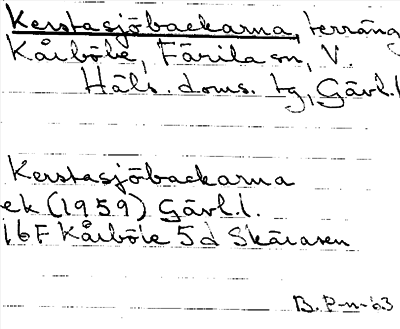 Kerstasjöbackarna, terräng
Kårböle, Färila sn, V.
Häls. doms. tg, Gävl.l
Kerstasjöbackarna
ek (1959) Gävl.l.
16F Kårböle 5d Skäråsen
B. P-n-63